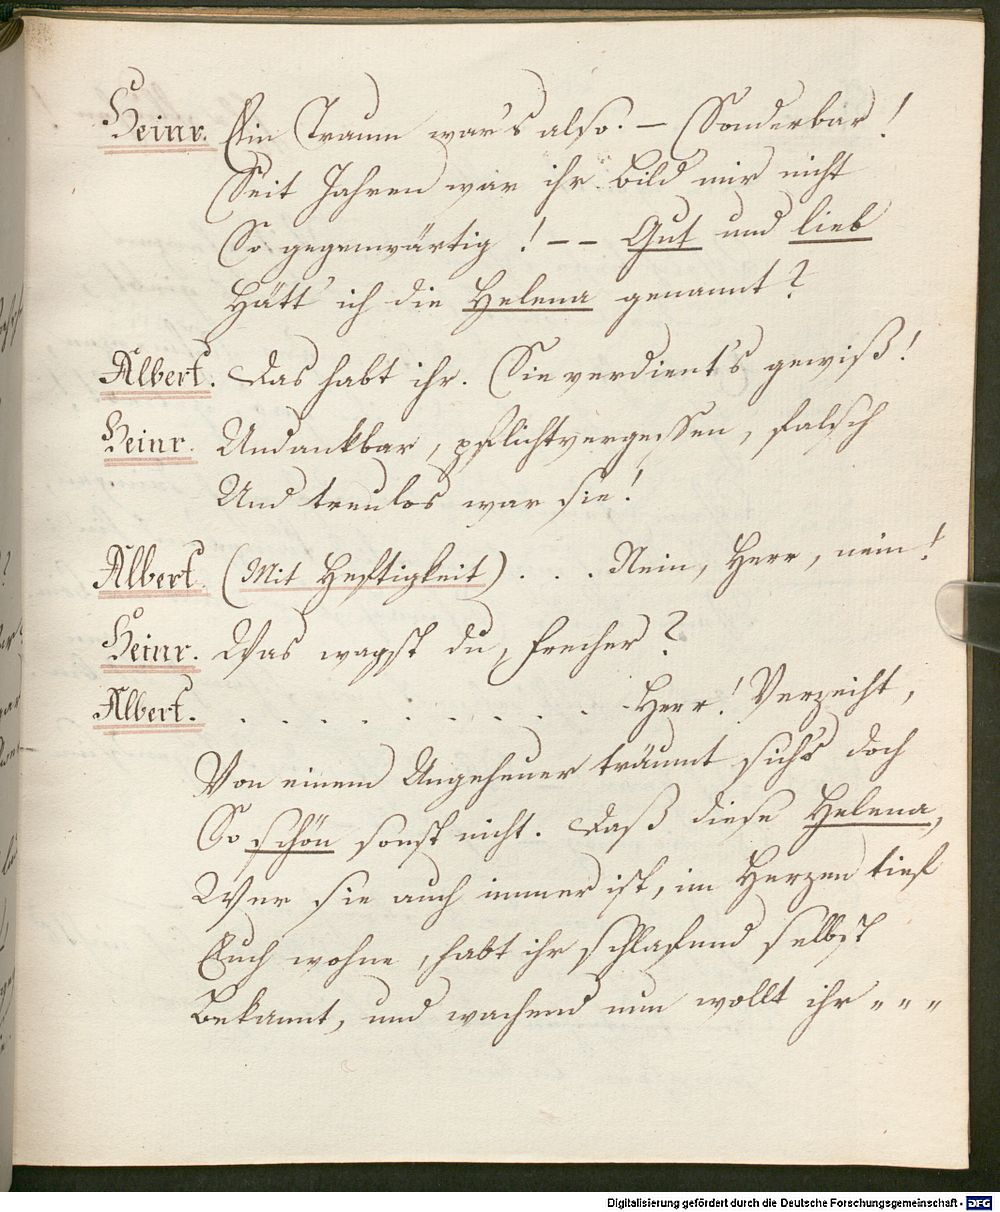 Heinr. Ein Traum war's also. – Sonderbar!
Seit Jahren war ihr Bild mir nicht
So gegenwärtig! – – Gut und lieb
Hätt' ich die Helena genannt?
Albert. Das habt ihr. Sie verdient's gewiß!
Heinr. Undankbar, pflichtvergessen, falsch
Und treulos war sie!
Albert. (Mit Heftigkeit) . . . Nein, Herr, nein!
Heinr. Was wagst du, Frecher?
Albert. . . . . . . . . . . Herr! Verzeiht,
Von einem Ungeheuer träumt sich's doch
So schön sonst nicht. Daß diese Helena,
Wer sie auch immer ist, im Herzen tief
Euch wohne, habt ihr schlafend selbst
Bekannt, und wachend nun wollt ihr „ „ „
Digitalisierung gefördert durch die Deutsche Forschungsgemeinschaft - DFG